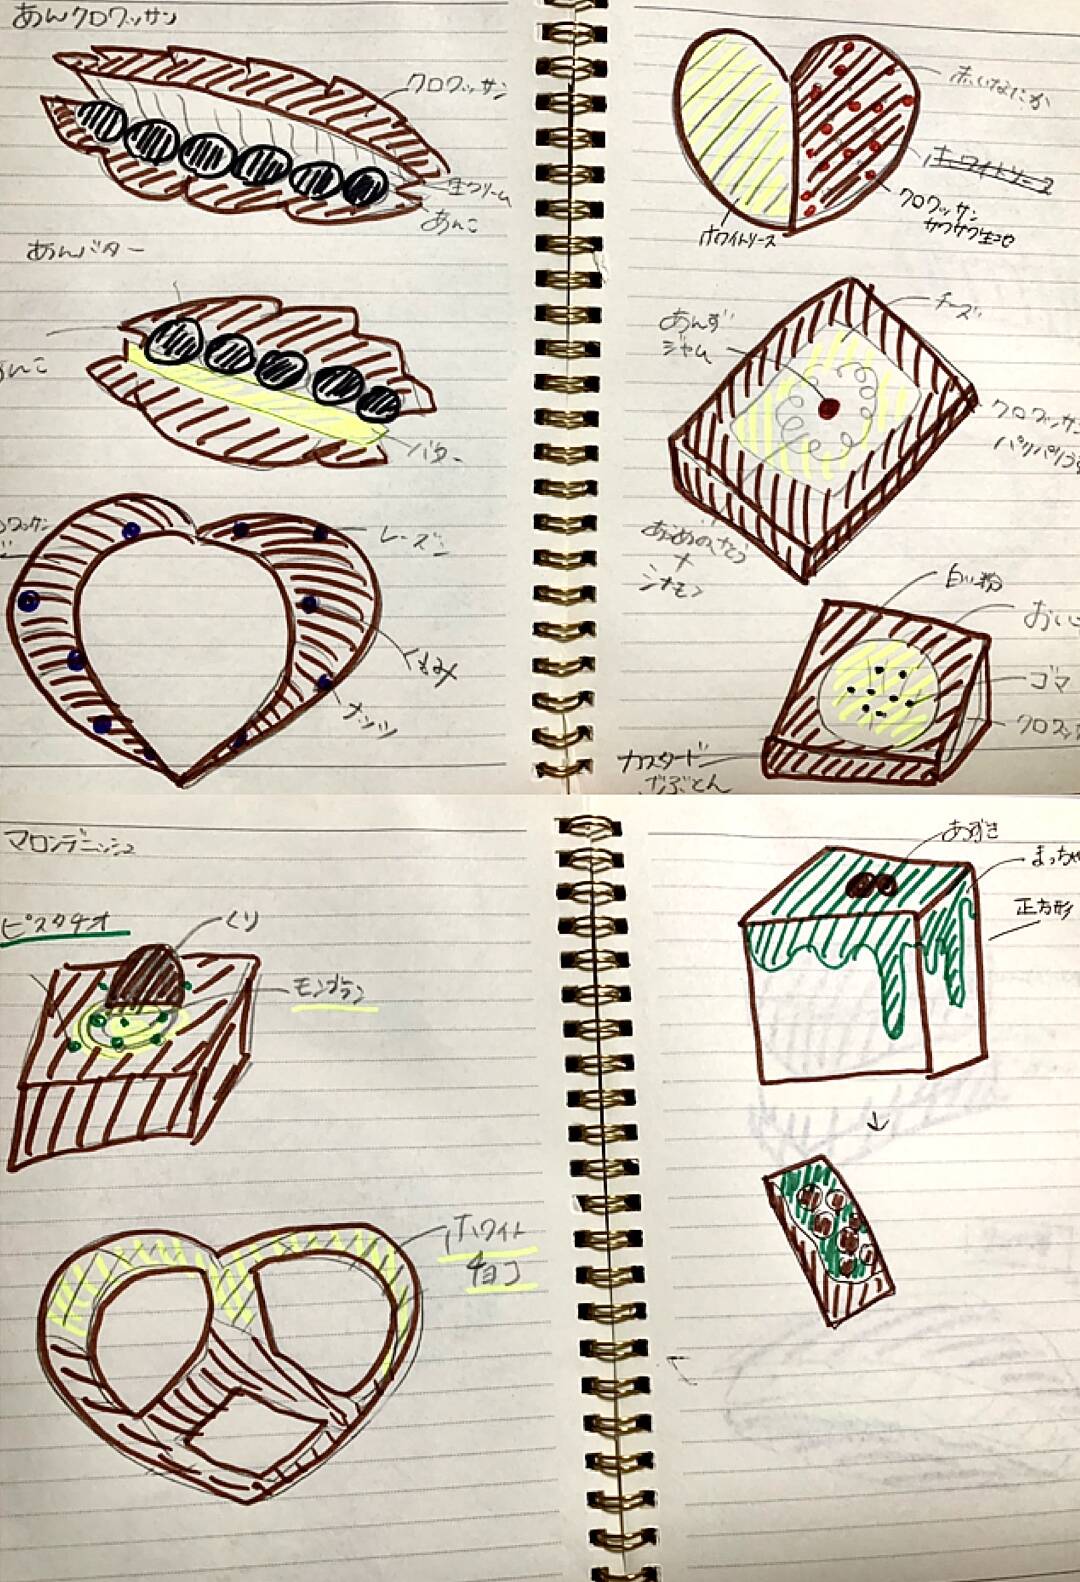 あんクロワッサン
クロワッサン
生クリーム
あんこ
あんバター
んこ
バター
レーズン
くるみ
ナッツ
赤いなにか
ホワイトソース
ホワイトソース
クロワッサン
サクサク生地
チーズ
あんず
ジャム
クロワッサン
パリパリ
シナモン
白い粉
ゴマ
カスタード
ざぶとん
マロンデニッシュ
ピスタチオ
くり
モンブラン
ホワイト
チョコ
あずき
まっちゃ
正方形